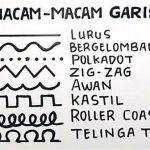 MACAM-MACAM GARIS
LURUS
BERGELOMBAN
POLKADOT
ZIG-ZAG
AWAN
KASTIL
ROLLER COAS
TELINGA T